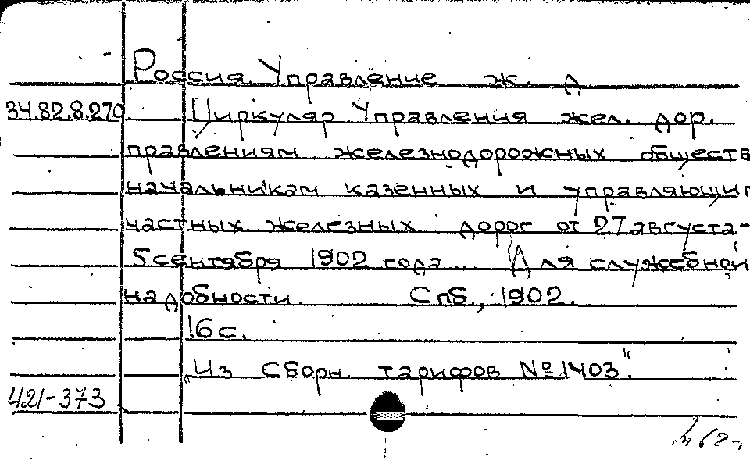 Россия. Управление ж. д
34.82.8.270 Циркуляр Управления жел. дор.
правлениям железнодорожных обществ
начальникам казенных и управляющи
частных железных дорог от 27 августа-
5 сентября 1902 года... Для служебной
надобности. Спб., 1902.
16 с.
„Из Сборн. тарифов № 1403"
421-373